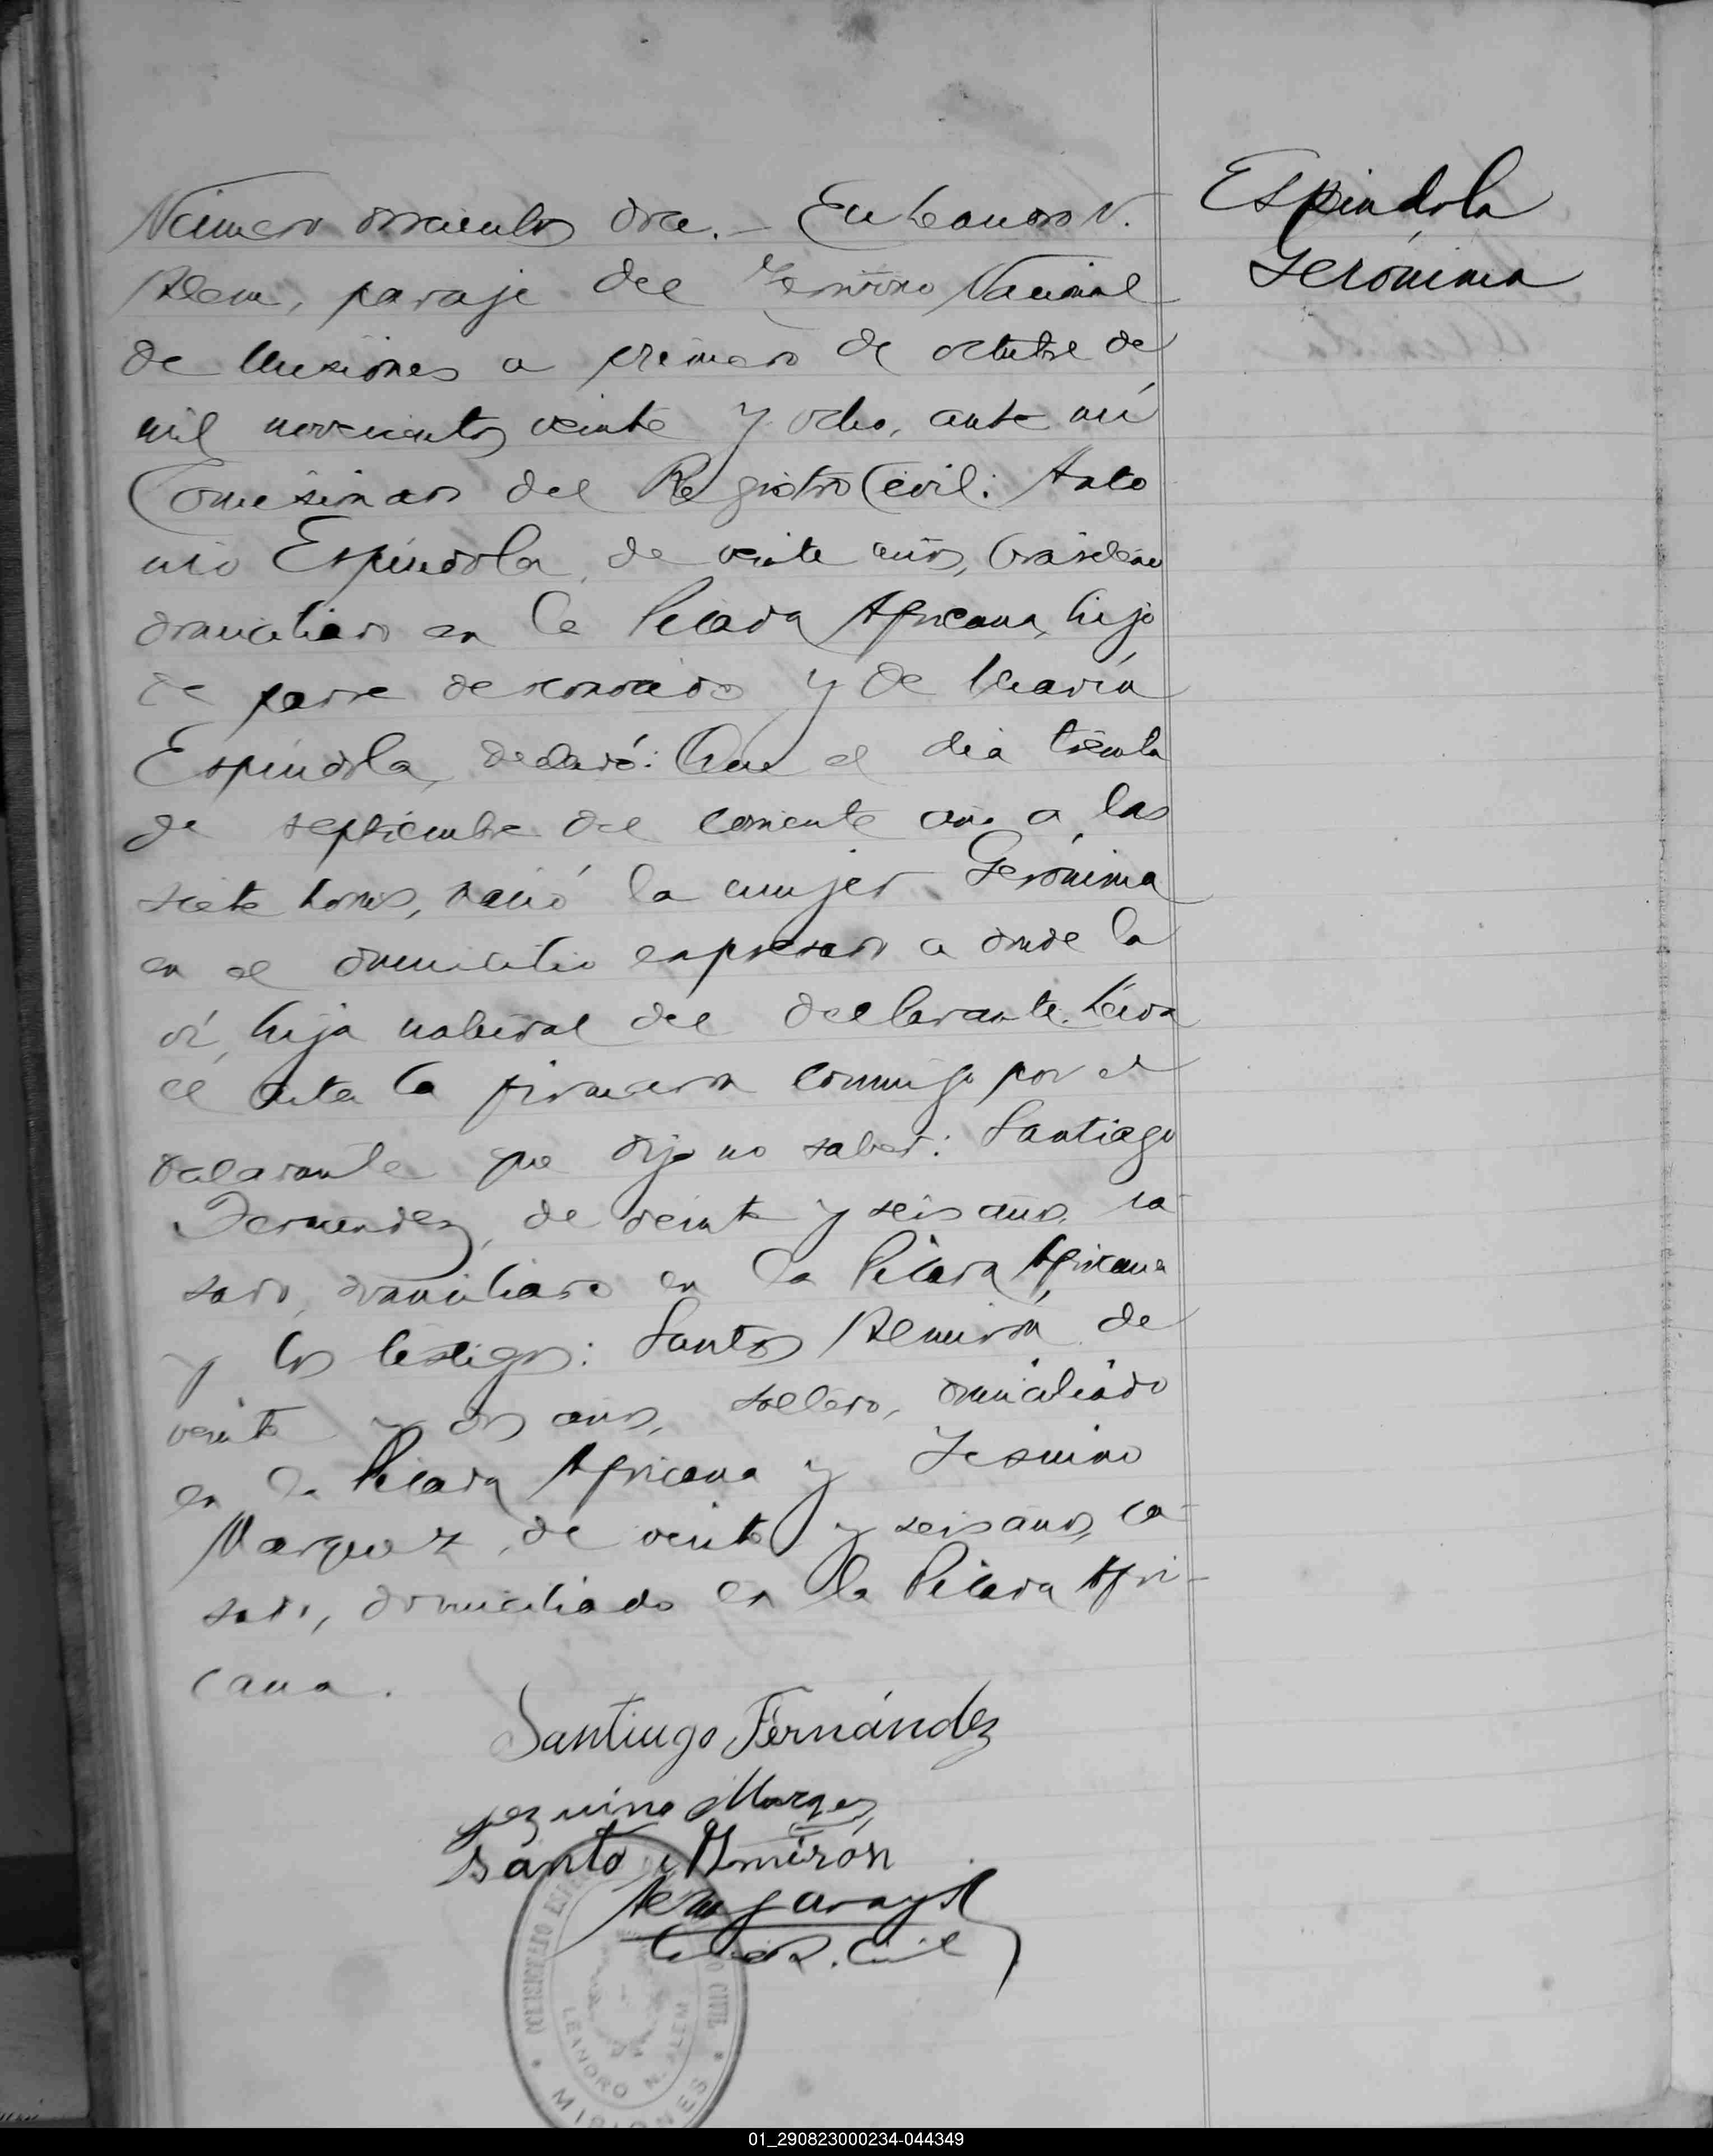 Espíndola
Gerónima
Número doscientos doce. – En Leandro N.
Alem, paraje del Territorio Nacional
de Misiones a primero de octubre de
mil novecientos veinte y ocho, ante mí
Comisionado del Registro Civil: Anto
nio Espíndola, de veinte años, brasileño
domiciliado en la Picada Africana, hijo
de padre desconocido y de María
Espíndola, declaró: Que el dia treinta
de septiembre del corriente año a las
siete horas, nació la mujer Gerónima
en el domicilio expresado a donde la
ví, hija natural del declarante. Leida
el acta la firmaron conmigo por el
declarante que dijo no saber: Santiago
Fernandez, de veinte y seis años, ca-
sado, domiciliado en la Picada Africana
y los testigos: Santos Almirón, de
veinte y dos años, soltero, domiciliado
en la Picada Africana y Jesuino
Marquez, de veinte y seis años, ca-
sado, domiciliado en la Picada Afri-
cana.
Santiago Fernández
Jezuino Marquez
Santo Almirón
R. Civil
REGISTRO CIVIL
LEANDRO N. ALEM
* MISIONES *
01_290823000234-044349